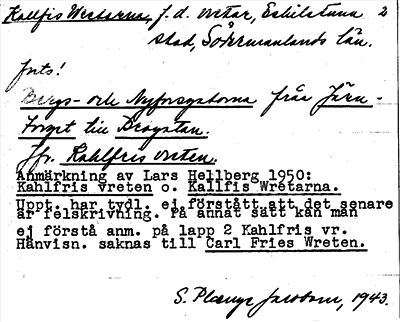 Kallfis Wretarna, f. d. vretar, Eskilstuna 2
stad, Södermanlands län.
forts!
Bergs- och Nyforsgatorna från Järn-
torget till Drogstan.
Jfr. Kahlfris vreten.
Anmärkning av Lars Hellberg 1950:
Kahlfris vreten o. Kallfis Wretarna.
Uppt. har tydl. ej förstått att det senare
är felskrivning. På annat sätt kan man
ej förstå anm. på lapp 2 Kahlfris vr.
Hänvisn. saknas till Carl Fries Wreten.
S. Jacobson, 1943.